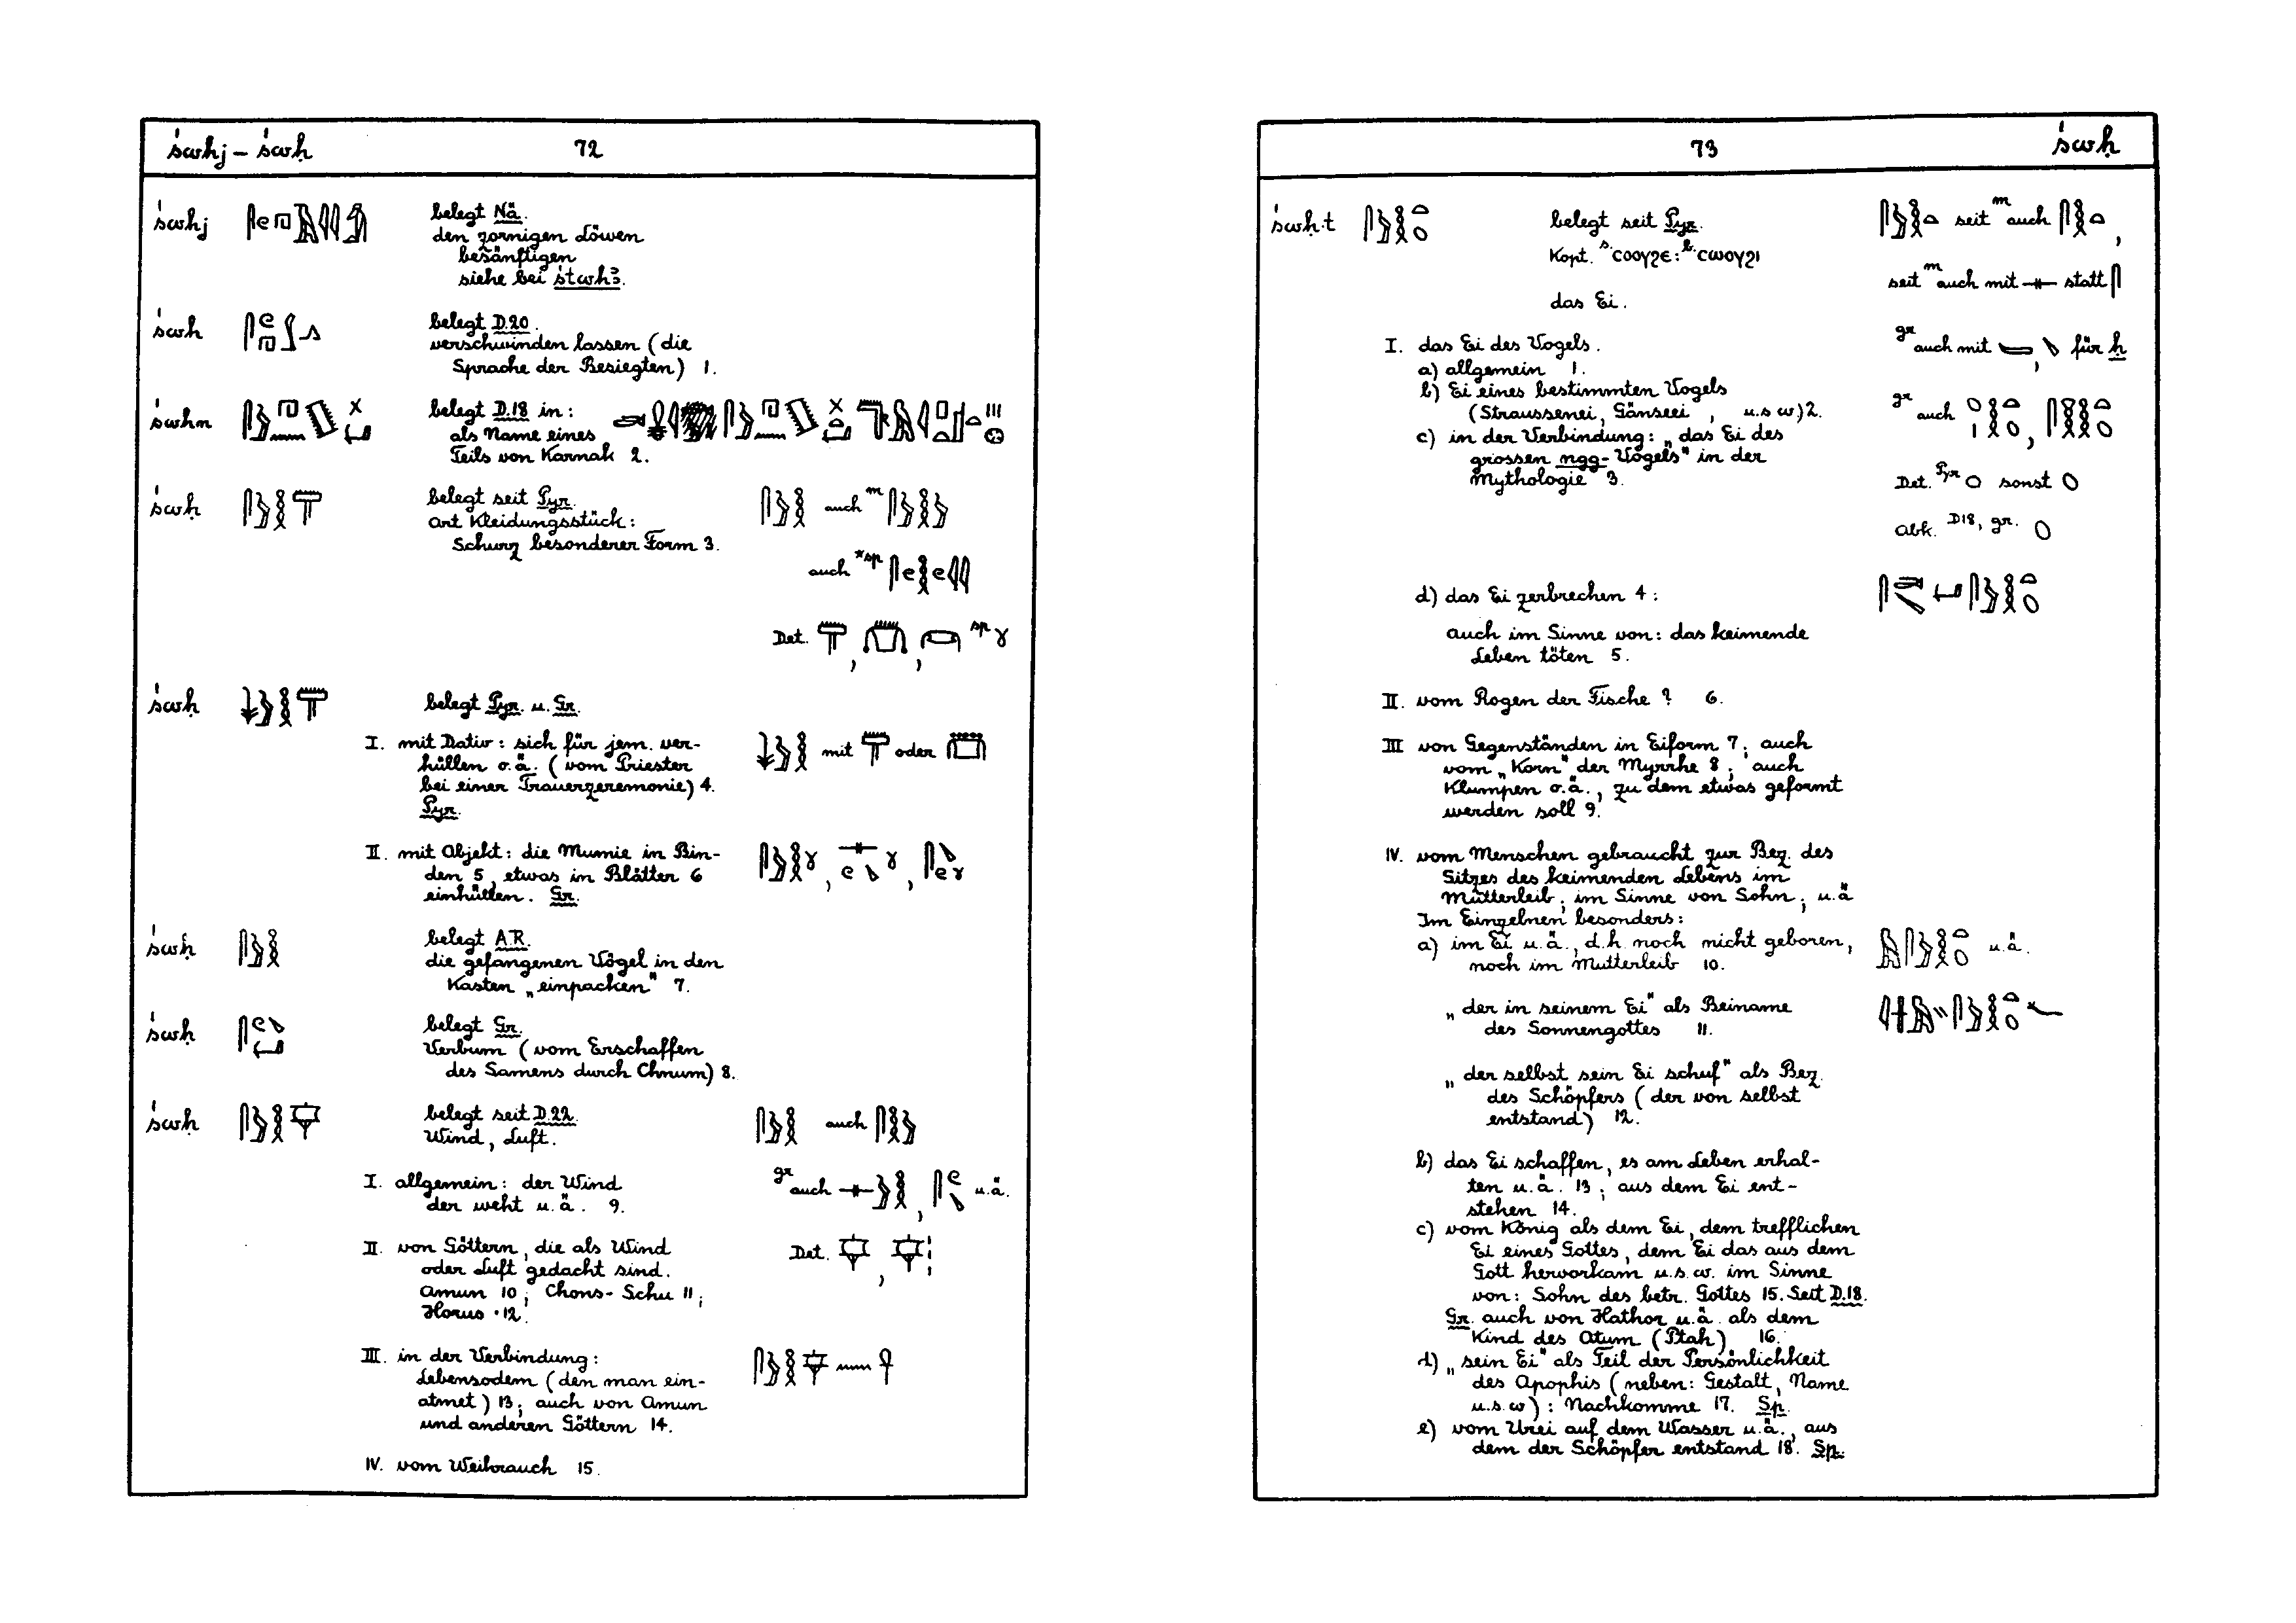 śwhj – śwḥ 72
śwhj belegt Nä.
den zornigen Löwen
besänftigen
siehe bei śtwhꜣ.
śwh belegt D.20.
verschwinden lassen (die
Sprache der Besiegten) 1.
śwhn belegt D.18 in:
als Name eines
Teils von Karnak 2.
śwḥ belegt seit Pyr. auch m
Art Kleidungsstück:
Schurz besonderer Form 3.
auch *sp
Det. , , sp
śwḥ belegt Pyr. u. Gr.
I. mit Dativ: sich für jem. ver-
hüllen o.ä. (vom Priester mit oder
bei einer Trauerzeremonie) 4.
Pyr.
II. mit Objekt: die Mumie in Bin-
den 5, etwas in Blätter 6 , ,
einhüllen. Gr.
śwḥ belegt AR.
die gefangenen Vögel in den
Kasten „einpacken" 7.
śwḥ belegt Gr.
Verbum (vom Erschaffen
des Samens durch Chnum) 8.
śwḥ belegt seit D.22. auch
Wind, Luft.
I. allgemein: der Wind gr auch , u.ä.
der weht u.ä. 9.
II. von Göttern, die als Wind Det. ,
oder Luft gedacht sind.
Amun 10; Chons-Schu 11;
Horus 12.
III. in der Verbindung:
Lebensodem (den man ein-
atmet) 13; auch von Amun
und anderen Göttern 14.
IV. vom Weihrauch 15.
73 śwḥ
śwḥ.t belegt seit Pyr. seit m auch ,
Kopt. s. ⲥⲟⲟⲩϩⲉ: b. ⲥⲱⲟⲩϩⲓ
seit m auch mit statt
das Ei.
I. das Ei des Vogels. gr auch mit , für ḥ
a) allgemein 1.
b) Ei eines bestimmten Vogels
(Straussenei, Gänseei, u.s.w.) 2. gr auch ,
c) in der Verbindung: „das Ei des
grossen ngg-Vogels" in der
Mythologie 3. Det. Pyr sonst
Abk. D18, gr.
d) das Ei zerbrechen 4:
auch im Sinne von: das keimende
Leben töten 5.
II. vom Rogen der Fische? 6.
III von Gegenständen in Eiform 7; auch
vom „Korn" der Myrrhe 8; auch
Klumpen o.ä., zu dem etwas geformt
werden soll 9.
IV. vom Menschen gebraucht zur Bez. des
Sitzes des keimenden Lebens im
Mutterleib; im Sinne von Sohn; u.ä
Im Einzelnen besonders:
a) im Ei u.ä., d.h. noch nicht geboren, u.ä.
noch im Mutterleib 10.
„der in seinem Ei" als Beiname
des Sonnengottes 11.
„der selbst sein Ei schuf" als Bez.
des Schöpfers (der von selbst
entstand) 12.
b) das Ei schaffen, es am Leben erhal-
ten u.ä. 13; aus dem Ei ent-
stehen 14.
c) vom König als dem Ei, dem trefflichen
Ei eines Gottes, dem Ei das aus dem
Gott hervorkam u.s.w. im Sinne
von: Sohn des betr. Gottes 15. Seit D.18.
Gr. auch von Hathor u.ä. als dem
Kind des Atum (Ptah) 16.
d) „sein Ei" als Teil der Persönlichkeit
des Apophis (neben: Gestalt, Name
u.s.w): Nachkomme 17. Sp.
e) vom Urei auf dem Wasser u.ä., aus
dem der Schöpfer entstand 18. Sp.